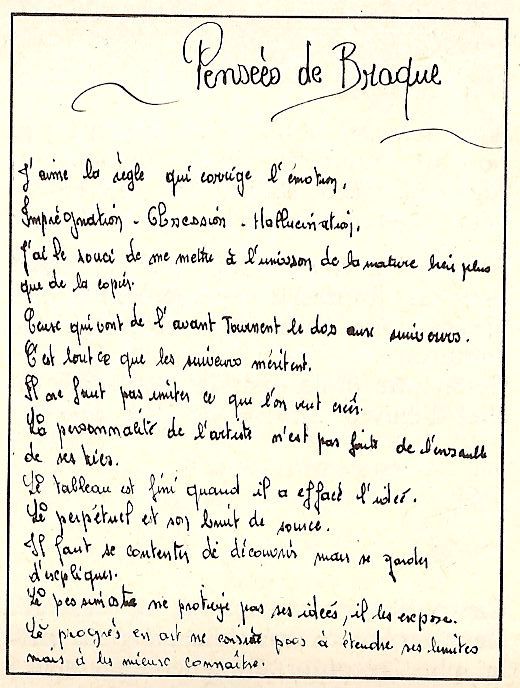 Pensées de Braque
J'aime la règle qui corrige l'émotion.
Imprégnation - Obsession - Hallucination.
J'ai le souci de me mettre à l'unisson de la nature bien plus
que de la copier.
Ceux qui vont de l'avant Tournent le dos aux suiveurs.
C'est tout ce que les suiveurs méritent.
Il ne faut pas imiter ce que l'on veut créer.
La personnalité de l'artiste n'est pas faite de l'ensemble
de ses tics.
Le tableau est fini quand il a effacé l'idée.
Le perpétuel et son bruit de source.
Il faut se contenter de découvrir mais se garder
d'expliquer.
Le pessimiste ne protège pas ses idées, il les expose.
Le progrès en art ne consiste pas à étendre ses limites
mais à les mieux connaître.